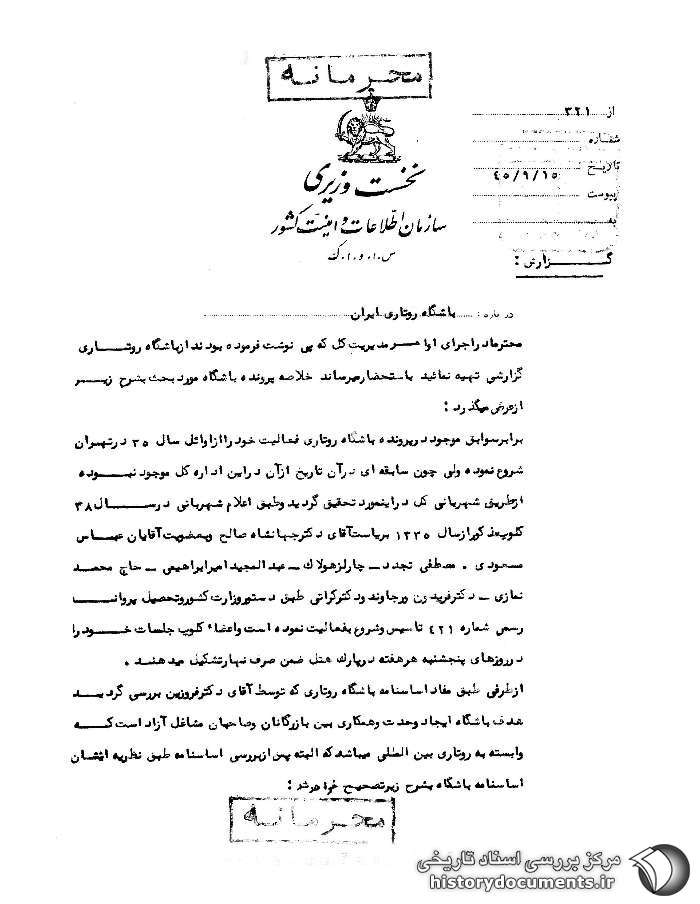 محرمانه
از ۳۲۱
شماره
تاریخ ۴۵/۹/۱۵
پیوست
به
نخست وزیری
سازمان اطلاعات و امنیت کشور
س.ا.و.ا.ک
گزارش :
درباره : باشگاه روتاری ایران
محترماً در اجرای اوامر مدیریت کل که پی نوشت فرموده بودند از باشگاه روتاری
گزارشی تهیه نمائید باستحضار میرساند خلاصه پرونده باشگاه مورد بحث بشرح زیر
از عرض میگذرد :
برابر سوابق موجود در پرونده باشگاه روتاری فعالیت خود را از اوائل سال ۳۵ در تهران
شروع نموده ولی چون سابقه ای در آن تاریخ از آن در این اداره کل موجود نبوده
از طریق شهربانی کل در اینمورد تحقیق گردید و طبق اعلام شهربانی در سال ۳۸
کلوب مذکور از سال ۱۳۳۵ بریاست آقای دکتر جهانشاه صالح و بعضویت آقایان عباس
مسعودی . مصطفی تجدد – چارلز هولاک – عبدالمجید امیرابراهیمی – حاج محمد
نمازی – دکتر فریدون ورجاوند و دکتر کراتی طبق دستور وزارت کشور و تحصیل پروانه
رسمی شماره ۴۲۱ تاسیس و شروع بفعالیت نموده است و اعضاء کلوب جلسات خود را
در روزهای پنجشنبه هر هفته در پارک هتل ضمن صرف نهار تشکیل میدهند .
از طرفی طبق مفاد اساسنامه باشگاه روتاری که توسط آقای دکتر فروزین بررسی گردید
هدف باشگاه ایجاد وحدت و همکاری بین بازرگانان و صاحبان مشاغل آزاد است که
وابسته به روتاری بین المللی میباشد که البته پس از بررسی اساسنامه طبق نظریه ایشان
اساسنامه باشگاه بشرح زیر تصحیح خواهد شد :
محرمانه
مرکز بررسی اسناد تاریخی
historydocuments.ir